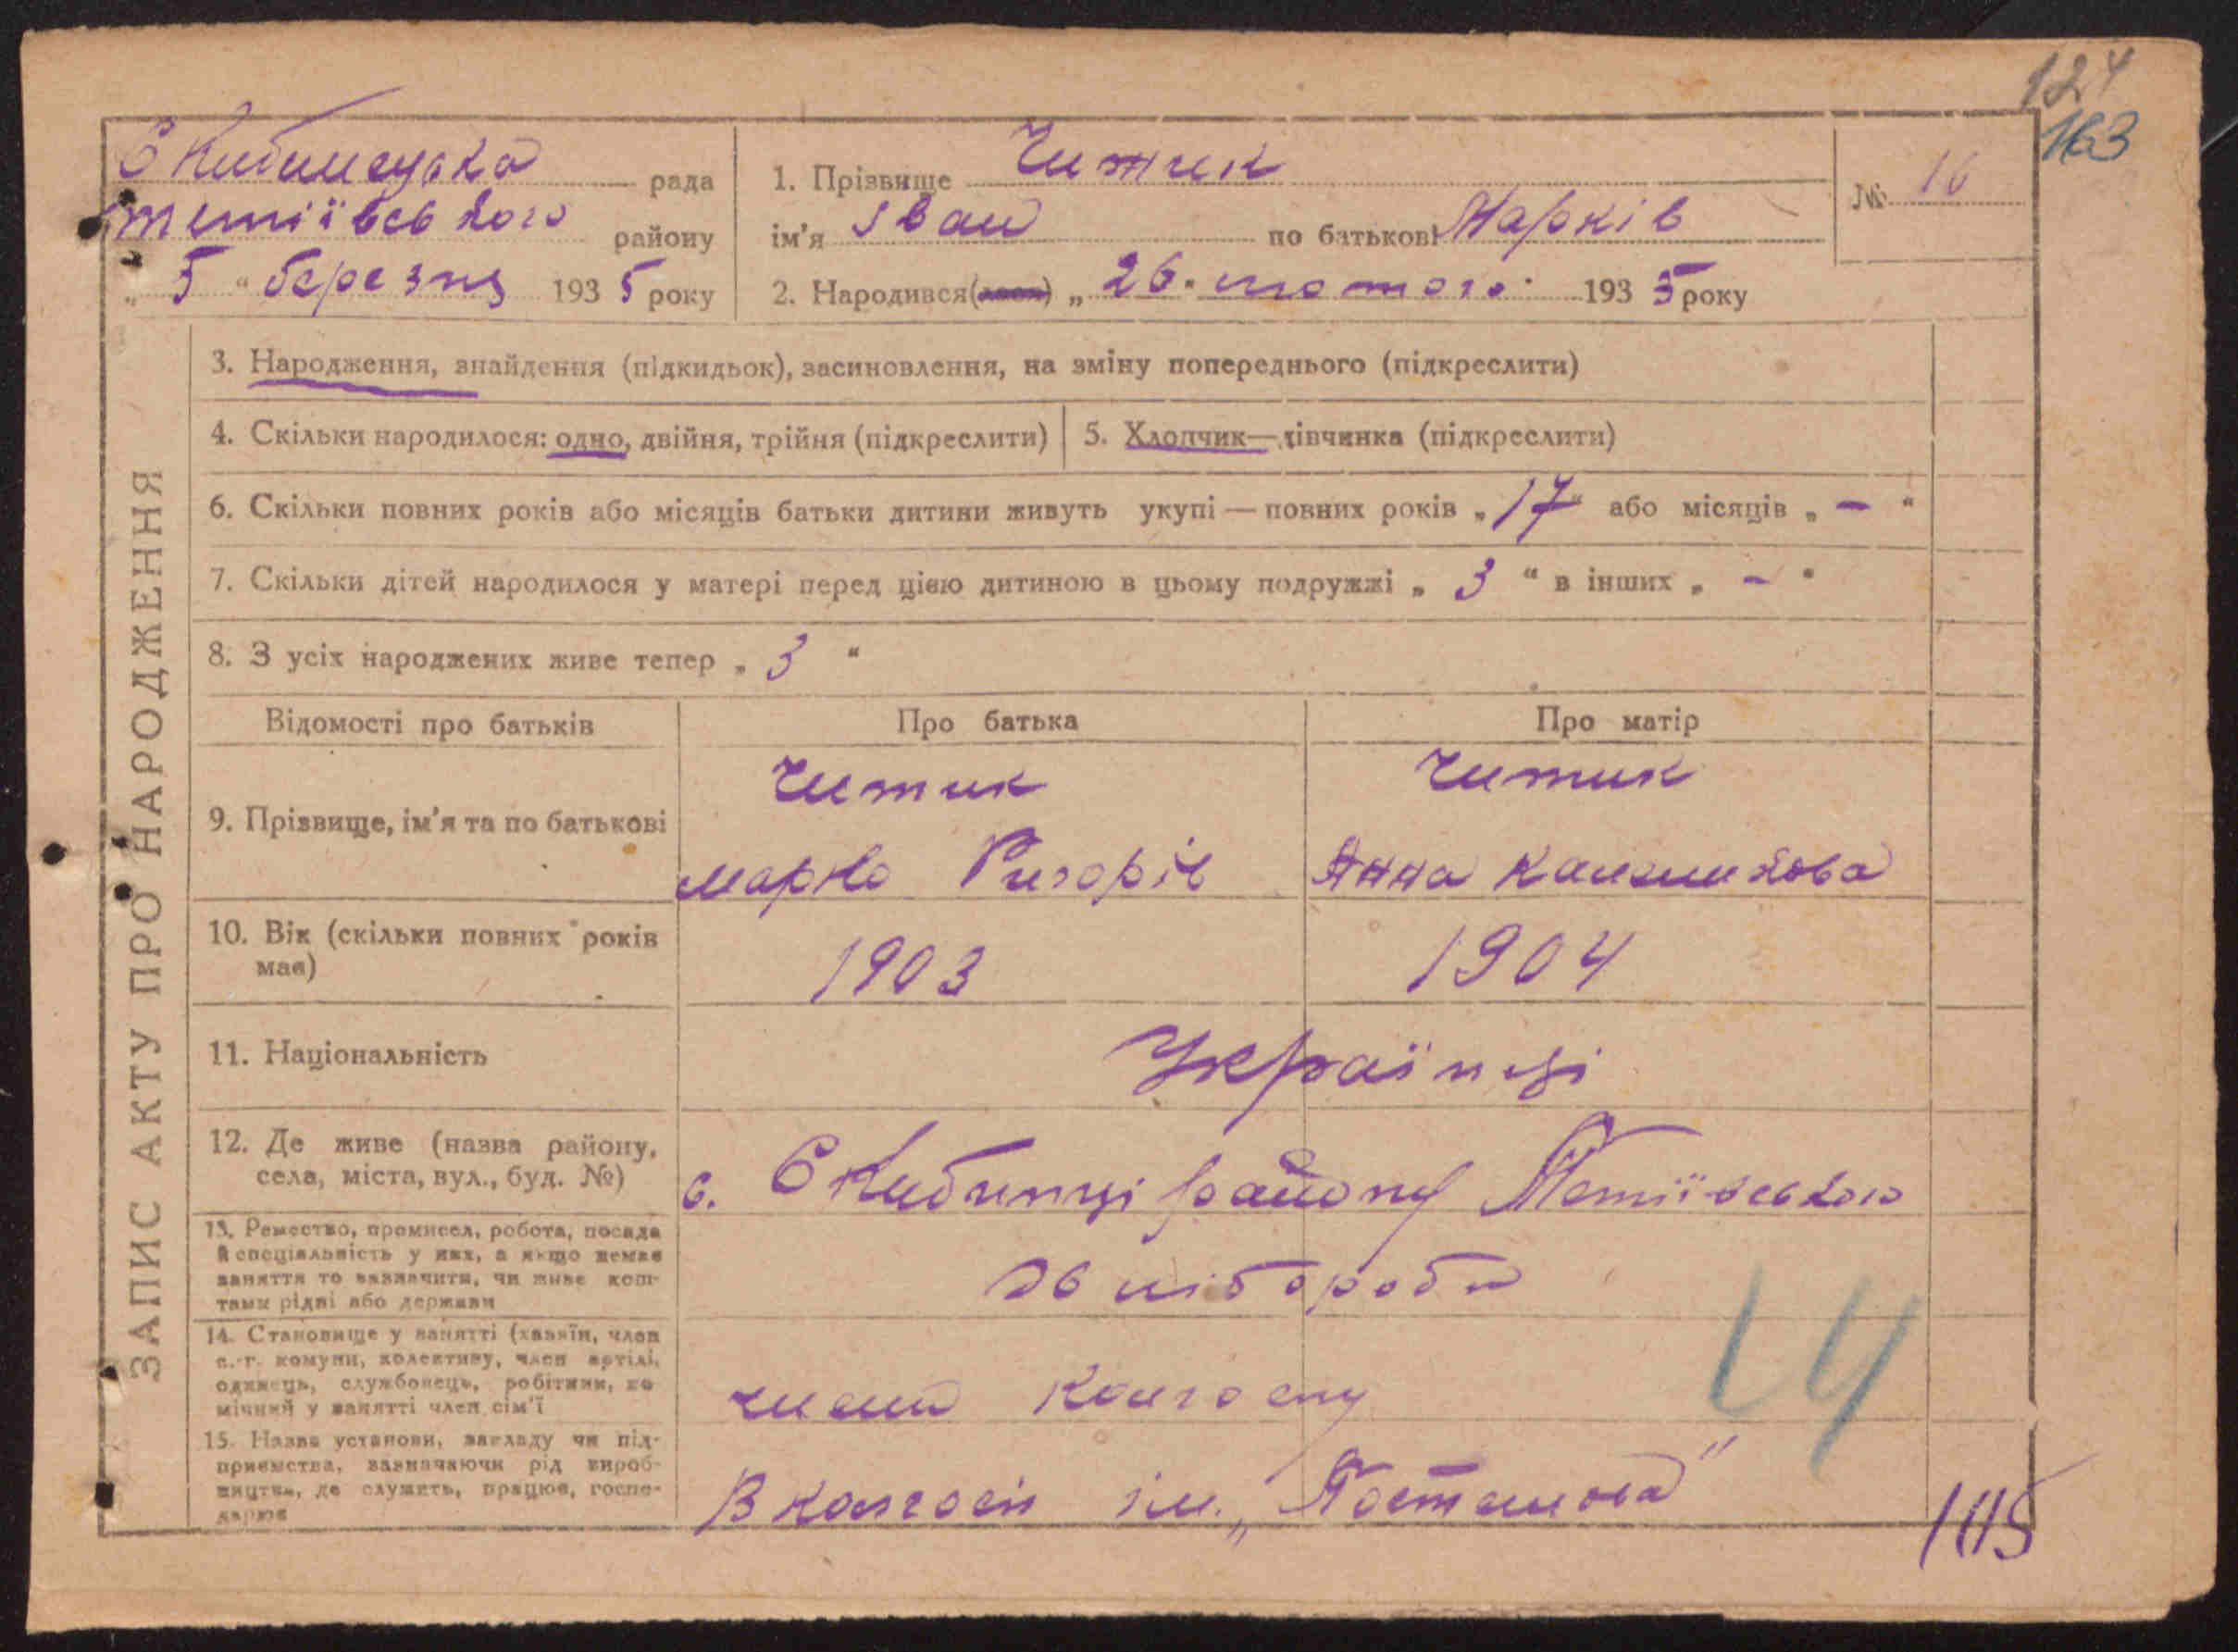 124
163
Скибинецька рада
Тетіївського району
„ 5 “ березня 1935 року
1. Прізвище Чижик
ім'я Іван по батькові Марків
2. Народився(лася) „ 26 “ лютого 1935 року
№ 16
ЗАПИС АКТУ ПРО НАРОДЖЕННЯ
3. Народження, знайдення (підкидьок), засиновлення, на зміну попереднього (підкреслити)
4. Скільки народилося: одно, двійня, трійня (підкреслити)
5. Хлопчик—дівчинка (підкреслити)
6. Скільки повних років або місяців батьки дитини живуть укупі — повних років „ 17 “ або місяців „ – “
7. Скільки дітей народилося у матері перед цією дитиною в цьому подружжі „ 3 “ в інших „ – “
8. З усіх народжених живе тепер „ 3 “
Відомості про батьків
Про батька
Про матір
9. Прізвище, ім'я та по батькові
Чижик
Марко Ригорів
Чижик
Анна
10. Вік (скільки повних років
має)
1903
1904
11. Національність
Українці
12. Де живе (назва району,
села, міста, вул., буд. №)
с. Скибинці району Тетіївського
13. Ремество, промисел, робота, посада
й спеціальність у них, а якщо немає
заняття то зазначити, чи живе кош-
тами рідні або держави
хліборобн
14. Становище у занятті (хазяїн, член
с.-г. комуни, колективу, член артілі,
одинець, службовець, робітник, по
мічний у занятті член сім'ї
члени колгоспу
15. Назва установи, закладу чи під-
приємства, зазначаючи рід вироб-
ництва, де служить, працює, госпо-
дарює
В колгоспі ім. „Постишева"
14
105